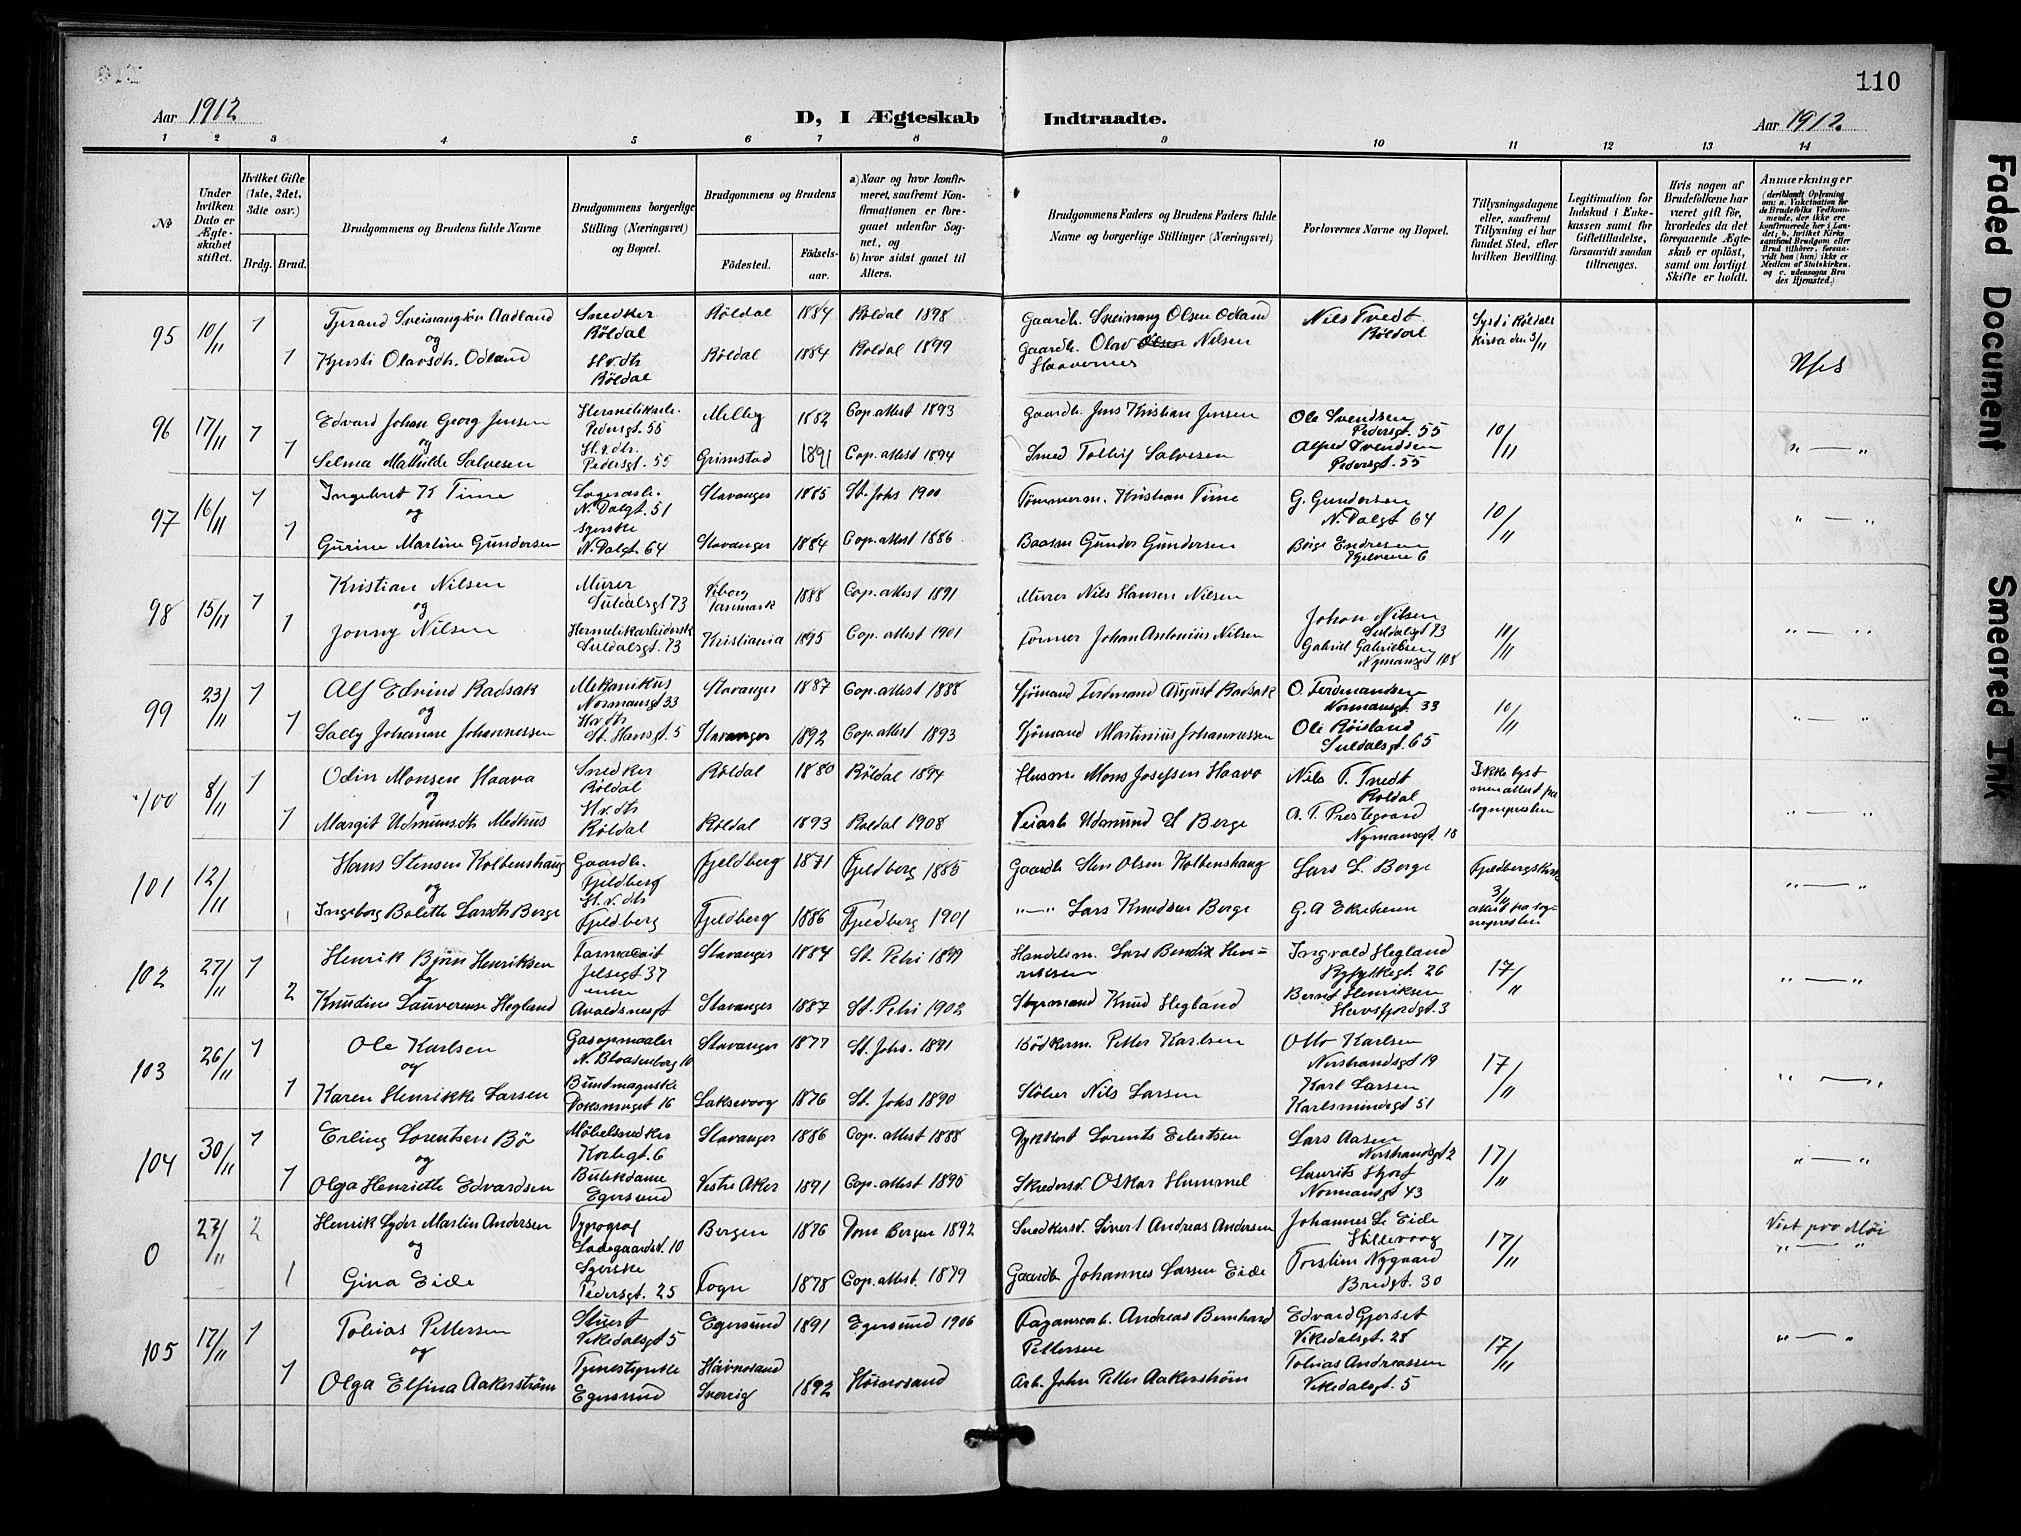 110
Aar 1912
D, I Ægteskab Indtraadte.
Aar 1912.
1 2 3 4 5 6 7 8 9 10 11 12 13 14
№
Under hvilken Dato er Ægteskabet stiftet.
Hvilket Gifte (1ste, 2det, 3die osv.)
Brdg. Brud.
Brudgommens og Brudens fulde Navne
Brudgommens borgerlige Stilling (Næringsvei) og Bopæl.
Brudgommens og Brudens
Fødested.
Fødselsaar.
a) Naar og hvor konfirmeret, saafremt Konfirmationen er foregaaet udenfor Sognet, og
b) hvor sidst gaaet til Alters.
Brudgommens Faders og Brudens Faders fulde Navne og borgerlige Stillinger (Næringsvei)
Forlovernes Navne og Bopæl.
Tillysningsdagene eller, saafremt Tillysning ei har fundet Sted, efter hvilken Bevilling.
Legitimation for Indskud i Enkekassen samt for Giftetilladelse, forsaavidt saadan tiltrænges.
Hvis nogen af Brudefolkene har været gift før, hvorledes da det foregaaende Ægteskab er opløst, samt om lovligt Skifte er holdt.
Anmærkninger
(deriblandt Oplysning om: a. Vaccination for de Brudefolks Vedkommende, der ikke ere konfirmerede her i Landet; b. hvilket Kirkesamfund Brudgom eller Brud tilhører, forsaavidt han (hun) ikke er Medlem af Statskirken, og c. udensogns Brudes Hjemsted.)
95 10/11 1 Tjerand Sveinungsön Aadland Snedker Röldal Röldal 1884 Röldal 1898 Gaardb. Sveinung Olsen Odland Nils Tvedt Röldal Lyst i Röldals Kirke den 3/11
og
1 Kjersti Olavsdtr. Odland H.v.dtr Röldal Röldal 1884 Roldal 1899 Gaardb. Olav Olsen Nilsen Haavernes
96 17/11 1 Edvard Johan Georg Jensen Hermetikarb. Pedersgt. 55 Melby 1882 Cop. attest 1893 Gaardb. Jens Kristian Jensen Ole Svendsen Pedersgt. 55 10/11 " — "
og
1 Selma Mathilde Salvesen H.v.dtr. Pedersgt. 55 Grimstad 1891 Cop. attest 1894 Smed Tollef Salvesen Alfred Svendsen Pedersgt. 55
97 16/11 1 Ingebret K Time N. Dalgt. 51 Stavanger 1885 St. Johs 1900 Tömmerm. Kristian Time G. Gundersen N. Dalgt 64 10/11 " — "
og
1 Gurine Martine Gundersen Syerske N. Dalgt. 64 Stavanger 1884 Cop. attest 1886 Baasm Gunder Gundersen Börge Endresen Kjelvene 6
98 15/11 1 Kristian Nilsen Murer Suldalsgt 73 Viborg Danmark 1888 Cop. attest 1891 Murer Nils Hansen Nilsen Johan Nilsen Suldalsgt 73 10/11 " — "
og
1 Jonny Nilsen Hermetikarbeidersk Suldalsgt. 73 Kristiania 1895 Cop. attest 1901 Former Johan Antonius Nilsen Gabriel Gabrielsen Nymansgt 108
99 23/11 1 Alf Edvind Radsak Mekanikus Normansgt 33 Stavanger 1887 Cop. attest 1888 Sjömand Ferdinand August Radsak O. Ferdinandsen Normansgt. 33 10/11 " — "
og
1 Sally Johanne Johannessen H.v.dtr St. Hansgt. 5 Stavanger 1892 Cop. attest 1893 Sjömand Martinius Johannessen Ole Röisland Suldalsgt. 65
100 8/11 1 Odin Monsen Haava Snedker Röldal Röldal 1880 Röldal 1894 Husm. Mons Josefsen Haavo Nils T. Tvedt Roldal Ikke lyst men attest fra sognepresten " — "
og
1 Margit Udmunsdtr Medhus H.v.dtr Röldal Röldal 1893 Roldal 1908 Veiarb Udmund E Berge A. T. Prestegaard Nymansgt. 18
101 12/11 Hans Stensen Kolbenshaug Gaardb. Fjeldberg Fjeldberg 1871 Fjeldberg 1885 Gaardb Sten Olsen Kolbenshaug Lars L. Berge Fjeldbergs Kirke 3/11 attest fra sognepresten " — "
og
1 Ingeborg Bolette Larsdtr Berge H.v.dtr Fjeldberg Fjeldberg 1886 Fjeldberg 1901 " — " Lars Knudsen Berge G. A Ekrheim
102 27/11 1 Henrik Björn Henriksen Farmaceit Jelsegt 37 Stavanger 1884 St. Petri 1899 Handelsm. Lars Bendix Henriksen Ingvald Hegland Ryfylkegt. 26 17/11 " — "
og
2 Knudine Lauverense Hegland Avaldsnesgt Stavanger 1887 St. Petri 1902 Styrmand Knud Hegland Bernt Henriksen Hervsfjordgt. 3
103 26/11 1 Ole Karlsen Gasopmaaler N. Blaasenborg 10 Stavanger 1877 St. Johs. 1891 Bödkerm. Petter Karlsen Otto Karlsen Norstrandsgt 19 17/11 " — "
og
1 Karen Henrikke Larsen Buntmagerske Voksmugt 16 Laksevaag 1876 St. Johs 1890 Stöber Nils Larsen Karl Larsen Karlsmindegt 51
104 30/11 1 Erling Lorentsen Bö Möbelsnedker Korbgt. 6 Stavanger 1886 Cop. attest 1888 Dykkert Lorents Eilertsen Lars Aasen Norstrandsgt 2 17/11 " — "
og
1 Olga Henriette Edvardsen Butikdame Egersund Vestre Aker 1891 Cop. attest 1895 Skredersv. Oskar Hummel Laurits Hjort Normansgt. 43
0 27/11 2 Henrik Lyder Martin Andersen Typograf Ladegaardsv. 10 Bergen 1876 Dom Bergen 1892 Snedkersv. Sivert Andreas Andersen Johannes L. Eide Hillevaag 17/11 " — "
og
1 Gina Eide Syerske Pedersgt. 25 Fogn 1878 Cop. attest. 1879 Gaardb Johannes Larsen Eide Torstein Nygaard Bredgt. 30
105 17/11 1 Tobias Pettersen Stuert Vikedalsgt 5 Egersund 1891 Egersund 1906 Andreas Bernhard Pettersen Edvard Gjerset Vikedalsgt. 28 17/11 " — "
og
1 Olga Elfina Aakerström Tjenestepike Egersund Hörnosand Sverrig 1892 Hörnosand Arb. John Petter Aakerström Tobias Andreassen Vikedalsgt. 5
Faded Document
Smeared Ink